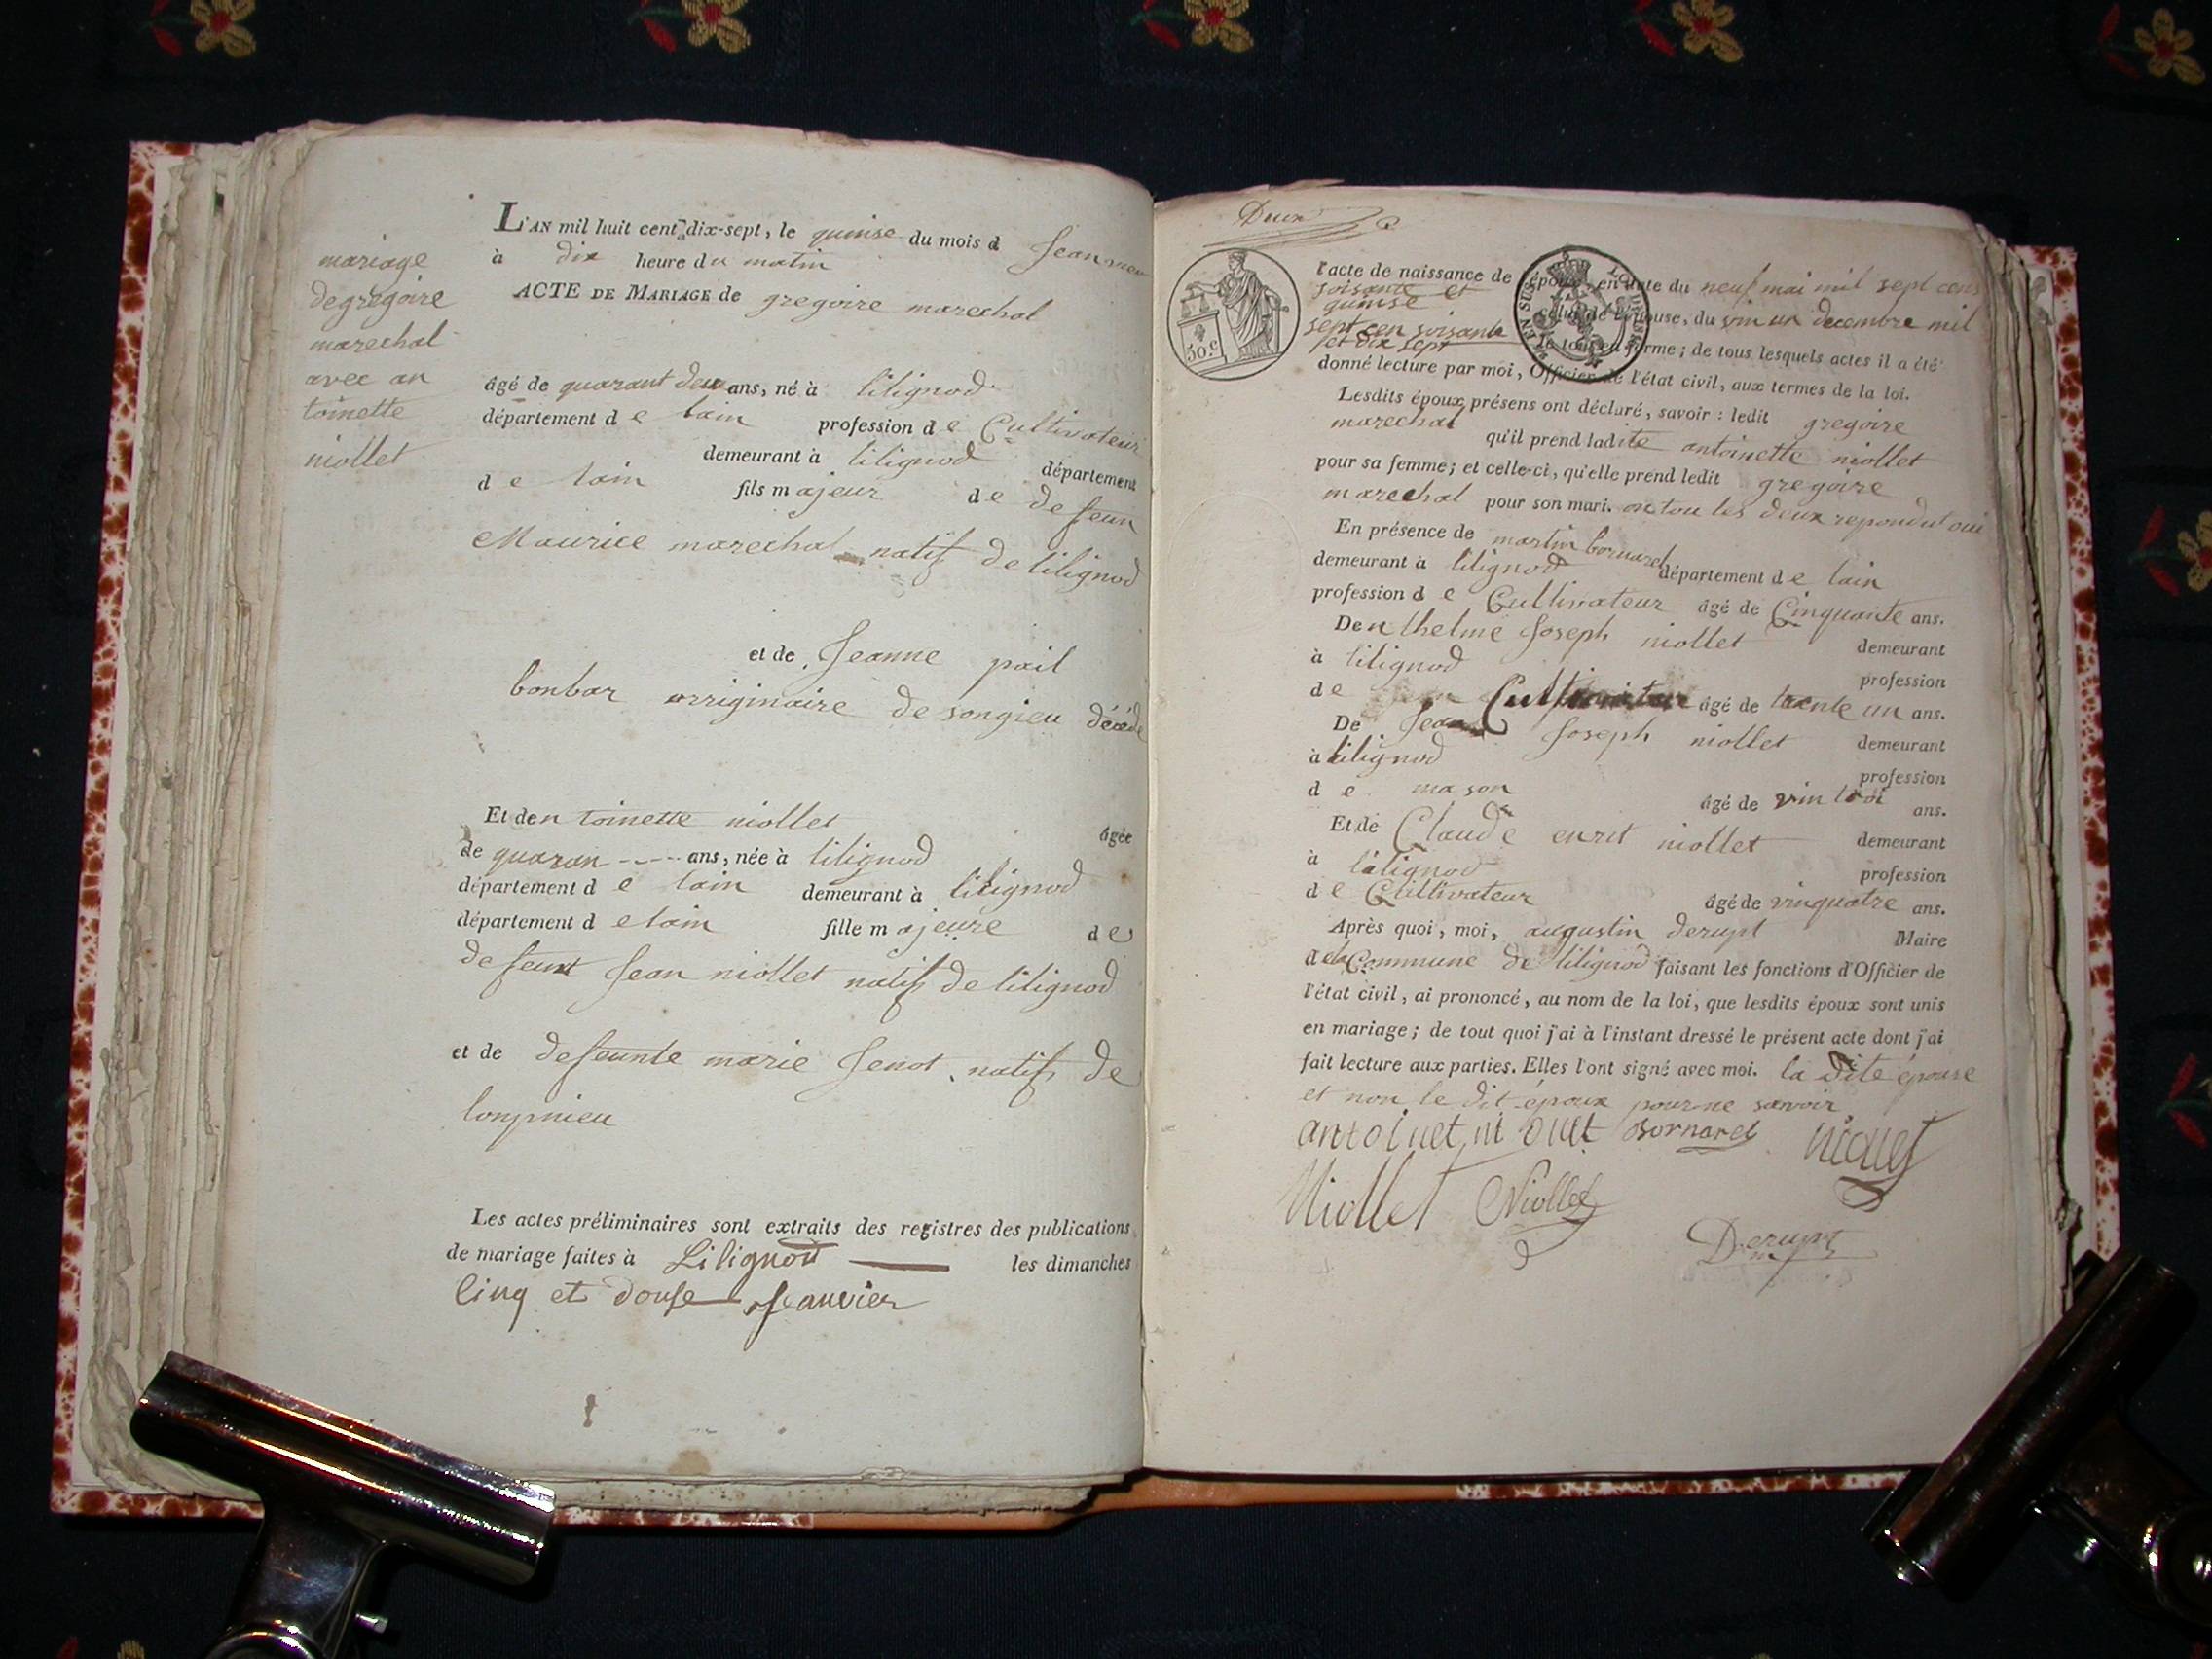 mariage
degregoire
marechal
avec an
toinette
niollet
L'AN mil huit cent dix-sept, le quinse du mois d Jean
à dix heure du matin
ACTE DE MARIAGE de gregoire marechal
âgé de quarant deux ans, né à lilignod
département d e lain profession d e Cultivateur
demeurant à lilignod département
d e lain fils majeur de defeun
Maurice marechal natif de lilignod
et de Jeanne pail
bonbar orriginaire de songieu décéde
Et den toinette niollet âgée
de quaran ---- ans, née à lilignod
département d e lain demeurant à lilignod
département d e lain fille majeure de
defeunt Jean niollet natif de lilignod
et de defeunte marie Jenot natif de
Les actes préliminaires sont extraits des registres des publications
de mariage faites à Lilignod les dimanches
Cinq et douse Jeanvier
Deux
50.c
l'acte de naissance de l'époux, en date du neuf mai mil sept cens
soisante et
quinse celui de l'épouse, du vin un decembre mil
sept cen soisante
et dix sept le tout en forme; de tous lesquels actes il a été
donné lecture par moi, Officier de l'état civil, aux termes de la loi.
Lesdits époux présens ont déclaré, savoir : ledit gregoire
marechal qu'il prend ladite antoinette niollet
pour sa femme; et celle-ci, qu'elle prend ledit gregoire
marechal pour son mari. on tou les deux repondut oui
En présence de martin bornarel
demeurant à lilignod département d e lain
profession d e Cultivateur âgé de Cinquante ans.
Den thelme Joseph niollet demeurant
à lilignod profession
d e Cultivateur âgé de trente un ans.
De Jean Joseph niollet demeurant
à lilignod profession
d e mason âgé de vin troi ans.
Et de Claude niollet demeurant
à lilignod profession
d e Cultivateur âgé de vinquatre ans.
Après quoi, moi, augustin derupt Maire
dela Commune de lilignod faisant les fonctions d'Officier de
l'état civil, ai prononcé, au nom de la loi, que lesdits époux sont unis
en mariage; de tout quoi j'ai à l'instant dressé le présent acte dont j'ai
fait lecture aux parties. Elles l'ont signé avec moi. la dite épouse
et non le dit époux pour ne savoir
antoinet niollet Bornarel
Niollet Niollet
Derupt